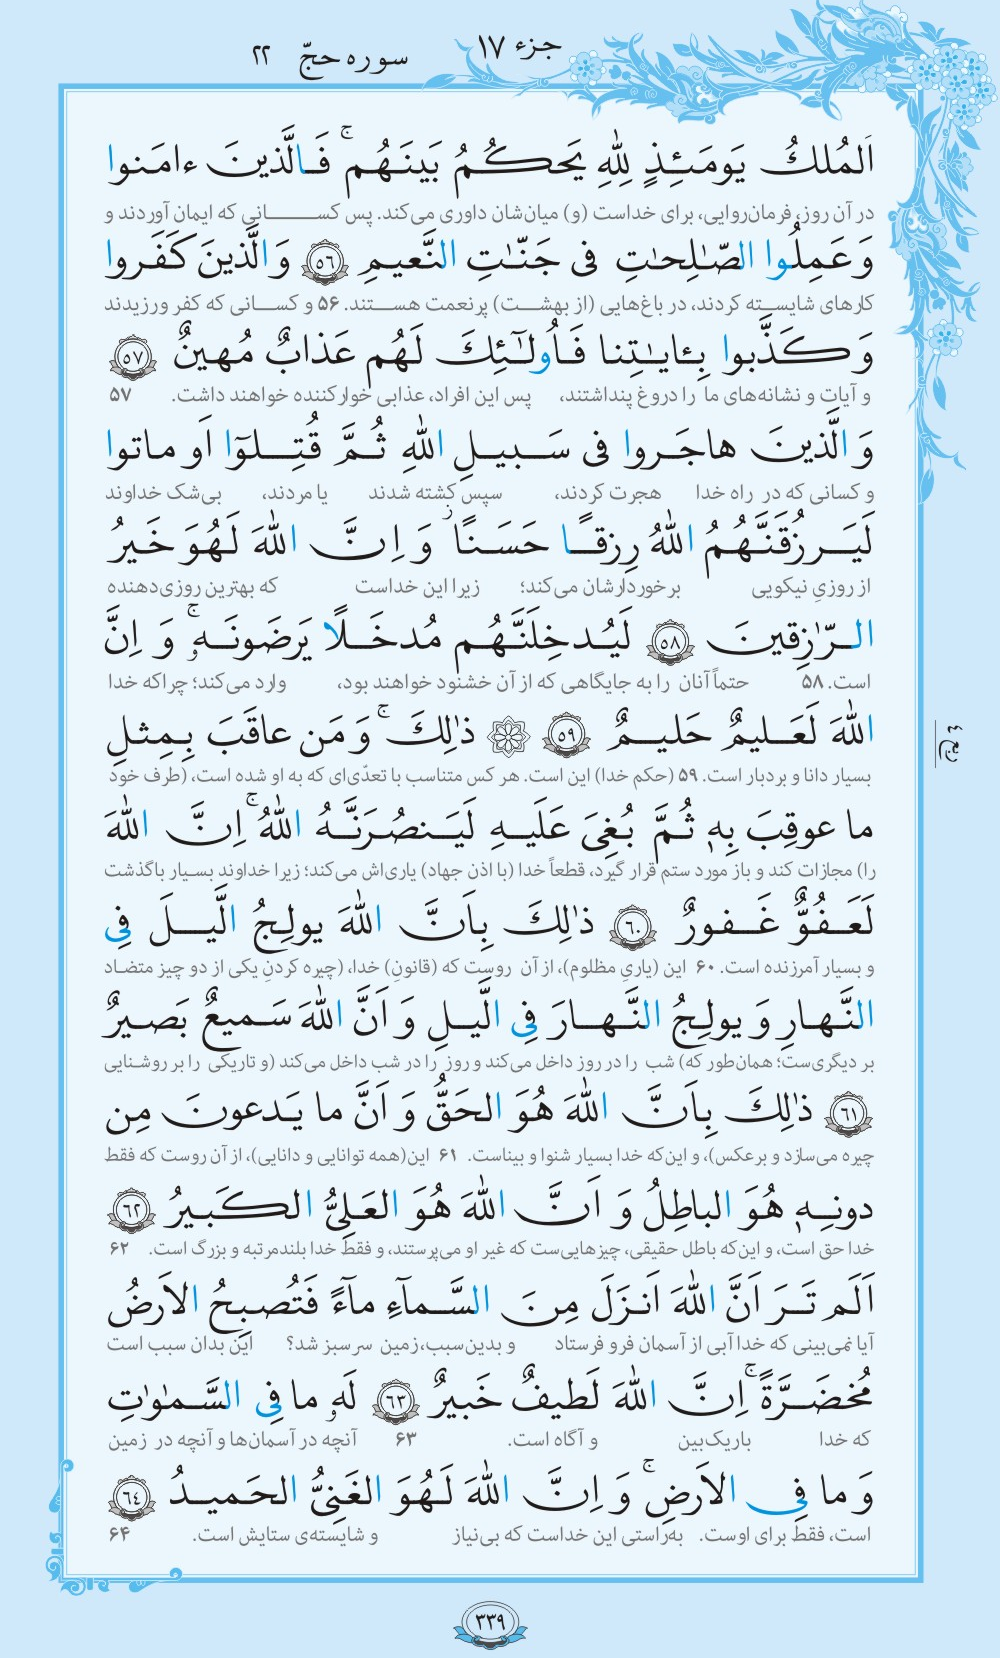 جزء ۱۷
سوره حجّ ۲۲
اَلمُلكُ یَومَئِذٍ لِلّٰهِ یَحکُمُ بَینَهُم ۚ فَالَّذینَ ءامَنوا
در آن روز، فرمان‌روایی، برای خداست (و) میان‌شان داوری می‌کند. پس کسانی که ایمان آوردند و
وَ عَمِلُوا الصّٰلِحٰتِ فی جَنّٰتِ النَّعیمِ ﴿٥٦﴾ وَ الَّذینَ کَفَروا
کارهای شایسته کردند، در باغ‌هایی (از بهشت) پرنعمت هستند. ۵۶ و کسانی که کفر ورزیدند
وَ کَذَّبوا بِـٔایٰتِنا فَاُولٰٓئِکَ لَهُم عَذابٌ مُهینٌ ﴿٥٧﴾
و آیات و نشانه‌های ما را دروغ پنداشتند، پس این افراد، عذابی خوارکننده خواهند داشت. ۵۷
وَ الَّذینَ هاجَروا فی سَبیلِ اللّٰهِ ثُمَّ قُتِلوٓا اَو ماتوا
و کسانی که در راه خدا هجرت کردند، سپس کشته شدند یا مردند، بی‌شک خداوند
لَیَرزُقَنَّهُمُ اللّٰهُ رِزقًا حَسَنًا ۚ وَ اِنَّ اللّٰهَ لَهُوَ خَیرُ
از روزیِ نیکویی برخوردارشان می‌کند؛ زیرا این خداست که بهترین روزی‌دهنده
الرّٰزِقینَ ﴿٥٨﴾ لَیُدخِلَنَّهُم مُدخَلًا یَرضَونَهٗ ۚ وَ اِنَّ
است. ۵۸ حتماً آنان را به جایگاهی که از آن خشنود خواهند بود، وارد می‌کند؛ چراکه خدا
اللّٰهَ لَعَلیمٌ حَلیمٌ ﴿٥٩﴾ ۞ ذٰلِکَ ۚ وَ مَن عاقَبَ بِمِثلِ
بسیار دانا و بردبار است. ۵۹ (حکم خدا) این است. هر کس متناسب با تعدّی‌ای که به او شده است، (طرف خود
ربع ٤
ما عوقِبَ بِهٖ ثُمَّ بُغِیَ عَلَیهِ لَیَنصُرَنَّهُ اللّٰهُ ۚ اِنَّ اللّٰهَ
را) مجازات کند و باز مورد ستم قرار گیرد، قطعاً خدا (با اذن جهاد) یاری‌اش می‌کند؛ زیرا خداوند بسیار باگذشت
لَعَفُوٌّ غَفورٌ ﴿٦٠﴾ ذٰلِکَ بِاَنَّ اللّٰهَ یولِجُ الَّیلَ فِی
و بسیار آمرزنده است. ۶۰ این (یاریِ مظلوم)، از آن روست که (قانونِ) خدا، (چیره کردنِ یکی از دو چیز متضاد
النَّهارِ وَ یولِجُ النَّهارَ فِی الَّیلِ وَ اَنَّ اللّٰهَ سَمیعٌ بَصیرٌ
بر دیگری‌ست؛ همان‌طور که) شب را در روز داخل می‌کند و روز را در شب داخل می‌کند (و تاریکی را بر روشنایی
﴿٦١﴾ ذٰلِکَ بِاَنَّ اللّٰهَ هُوَ الحَقُّ وَ اَنَّ ما یَدعونَ مِن
چیره می‌سازد و برعکس)، و این‌که خدا بسیار شنوا و بیناست. ۶۱ این (همه توانایی و دانایی)، از آن روست که فقط
دونِهٖ هُوَ الباطِلُ وَ اَنَّ اللّٰهَ هُوَ العَلِیُّ الکَبیرُ ﴿٦٢﴾
خدا حق است، و این‌که باطل حقیقی، چیزهایی‌ست که غیر او می‌پرستند، و فقط خدا بلندمرتبه و بزرگ است. ۶۲
اَلَم تَرَ اَنَّ اللّٰهَ اَنزَلَ مِنَ السَّماءِ ماءً فَتُصبِحُ الاَرضُ
آیا نمی‌بینی که خدا آبی از آسمان فرو فرستاد و بدین‌سبب، زمین سرسبز شد؟ این بدان سبب است
مُخضَرَّةً ۚ اِنَّ اللّٰهَ لَطیفٌ خَبیرٌ ﴿٦٣﴾ لَهٗ ما فِی السَّمٰوٰتِ
که خدا باریک‌بین و آگاه است. ۶۳ آنچه در آسمان‌ها و آنچه در زمین
وَ ما فِی الاَرضِ ۚ وَ اِنَّ اللّٰهَ لَهُوَ الغَنِیُّ الحَمیدُ ﴿٦٤﴾
است، فقط برای اوست. به‌راستی این خداست که بی‌نیاز و شایسته‌ی ستایش است. ۶۴
۳۳۹